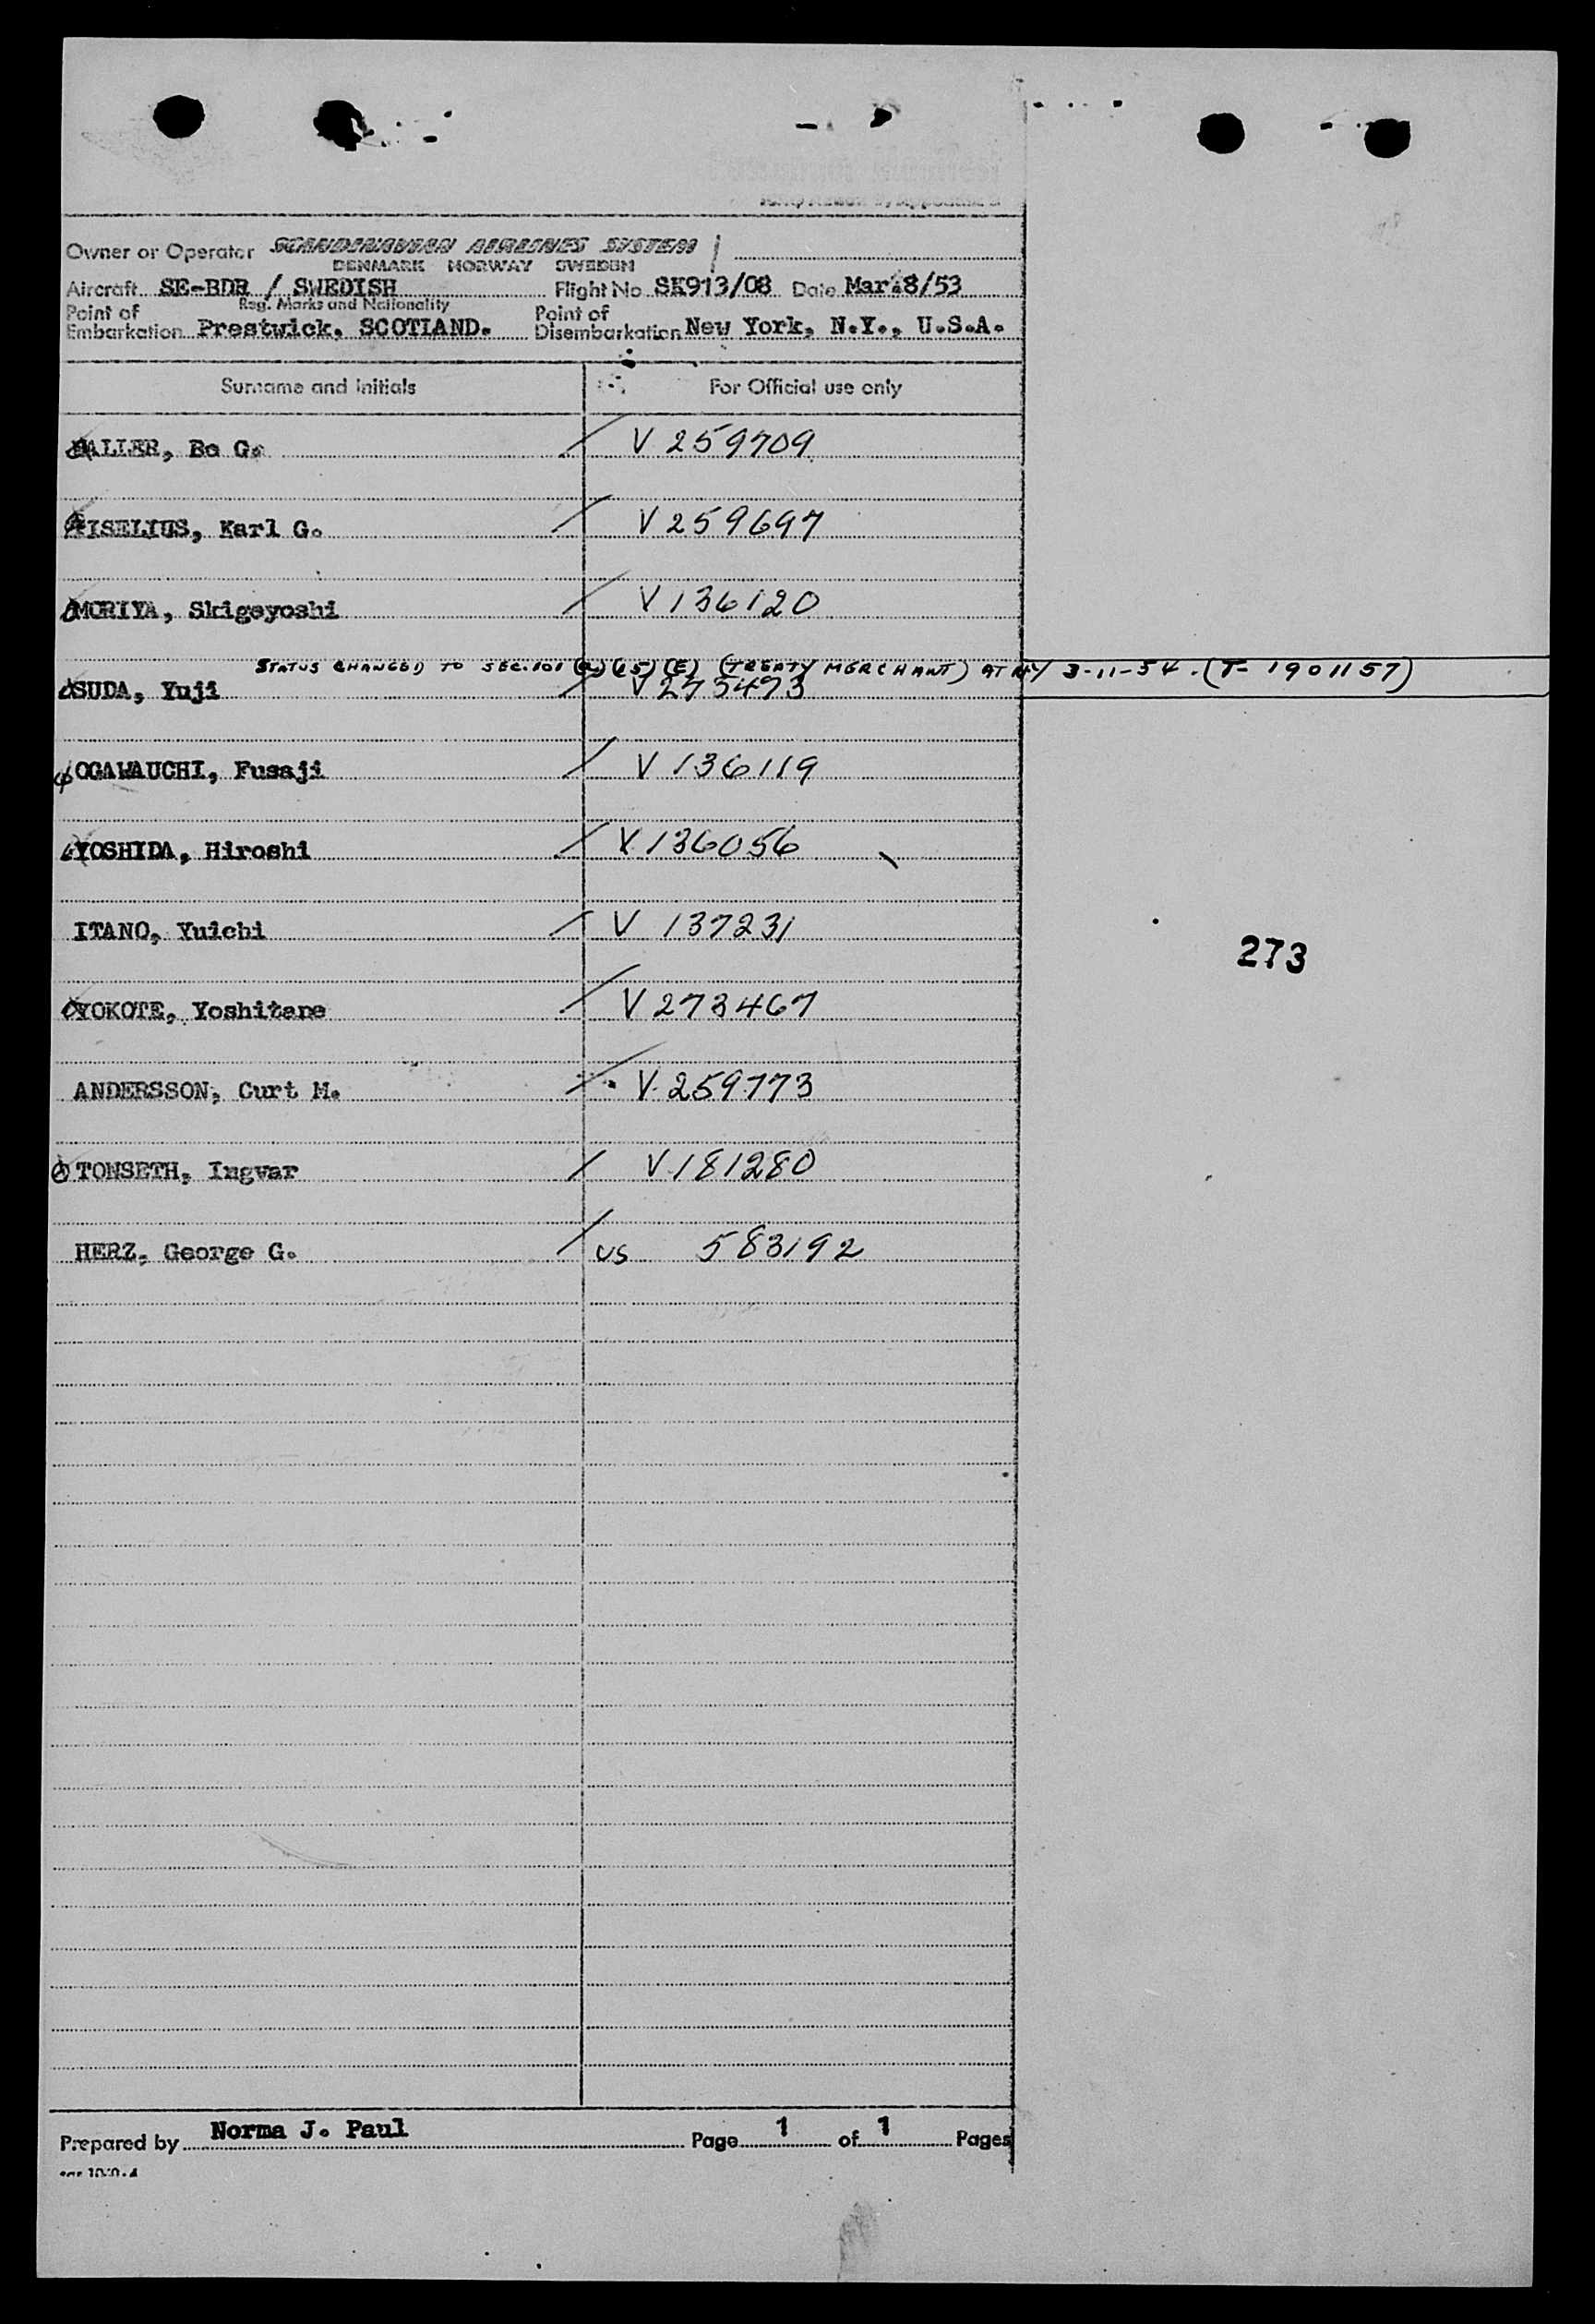 Owner or Operator SCANDINAVIAN AIRLINES SYSTEM
DENMARK NORWAY SWEDEN
Aircraft SE-BDR / SWEDISH Flight No SK913/08 Date Mar.8/53
Reg. Marks and Nationality
Point of Embarkation Prestwick, SCOTLAND. Point of Disembarkation New York, N.Y., U.S.A.
Surname and Initials For Official use only
HALLER, Bo G. V 259709
GISELIUS, Karl G. V 259697
MORIYA, Skigeyoshi V 136120
STATUS CHANGED TO SEC. 101 (a) (15) (E) (TREATY MERCHANT) AT NY 3-11-54. (T-1901157)
SUDA, Yuji V 273473
OGAWAUCHI, Fusaji V 136119
YOSHIDA, Hiroshi V 136056
ITANO, Yuichi V 137231
273
YOKOTE, Yoshitane V 273467
ANDERSSON, Curt M. V 259773
TONSETH, Ingvar V 181280
HERZ, George G. US 583192
Prepared by Norma J. Paul Page 1 of 1 Pages